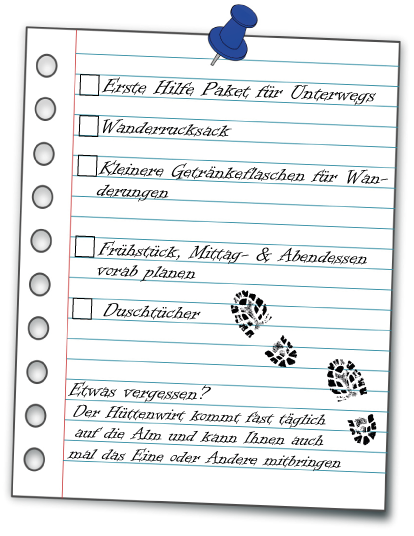 Erste Hilfe Paket für Unterwegs
Wanderrucksack
Kleinere Getränkeflaschen für Wan-
derungen
Frühstück, Mittag- & Abendessen
vorab planen
Duschtücher
Etwas vergessen?
Der Hüttenwirt kommt fast täglich
auf die Alm und kann Ihnen auch
mal das Eine oder Andere mitbringen